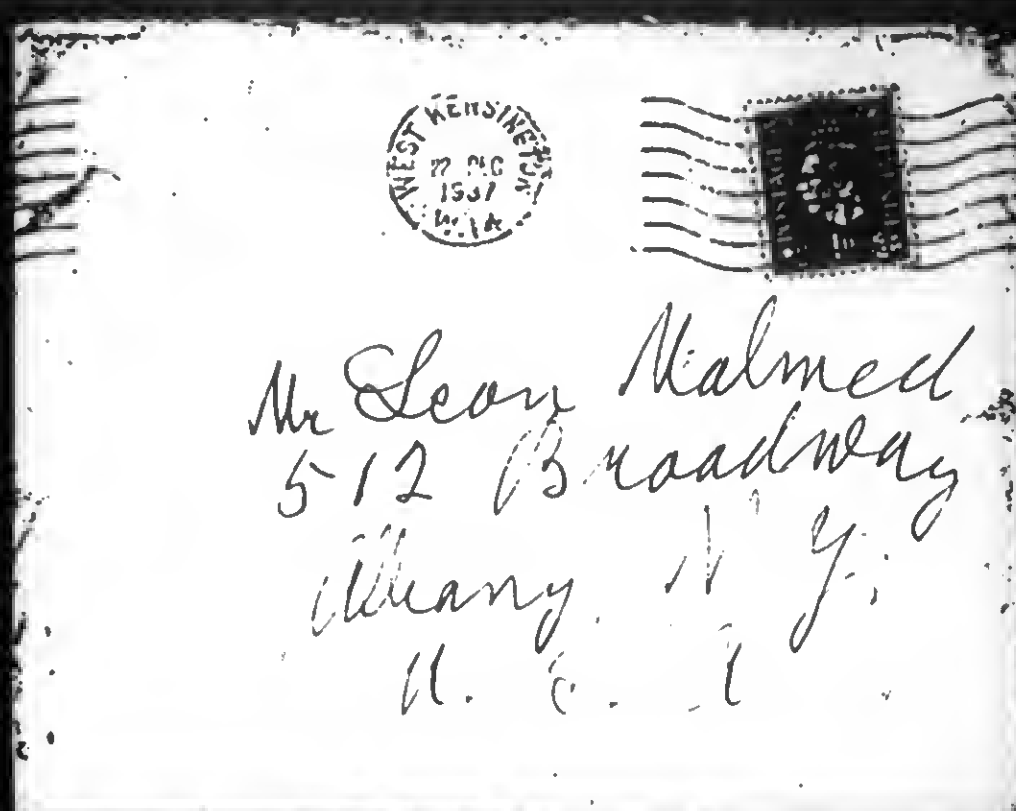 WEST KENSINGTON
22 DEC
1937
W.14
Mr Leon Malmed
512 Broadway
Albany N Y.
U. S. A